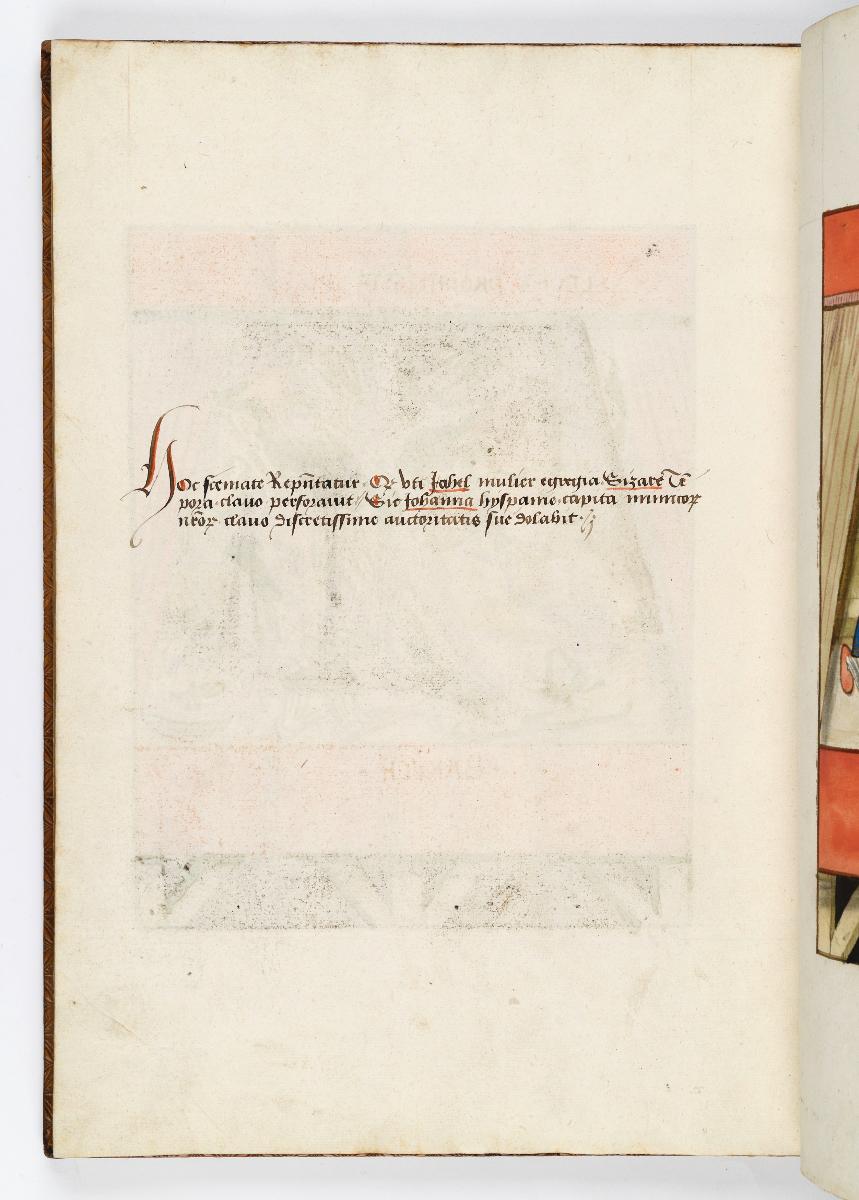 Hoc scemate Repn̄tatur · Qƺ vti Jahel mulier egregia Sizare Tē
pora clauo perforauit // Sic Johanna hyspanie capita inimicoꝝ
nr̄oꝝ clauo discretissime auctoritatis sue dolabit ·